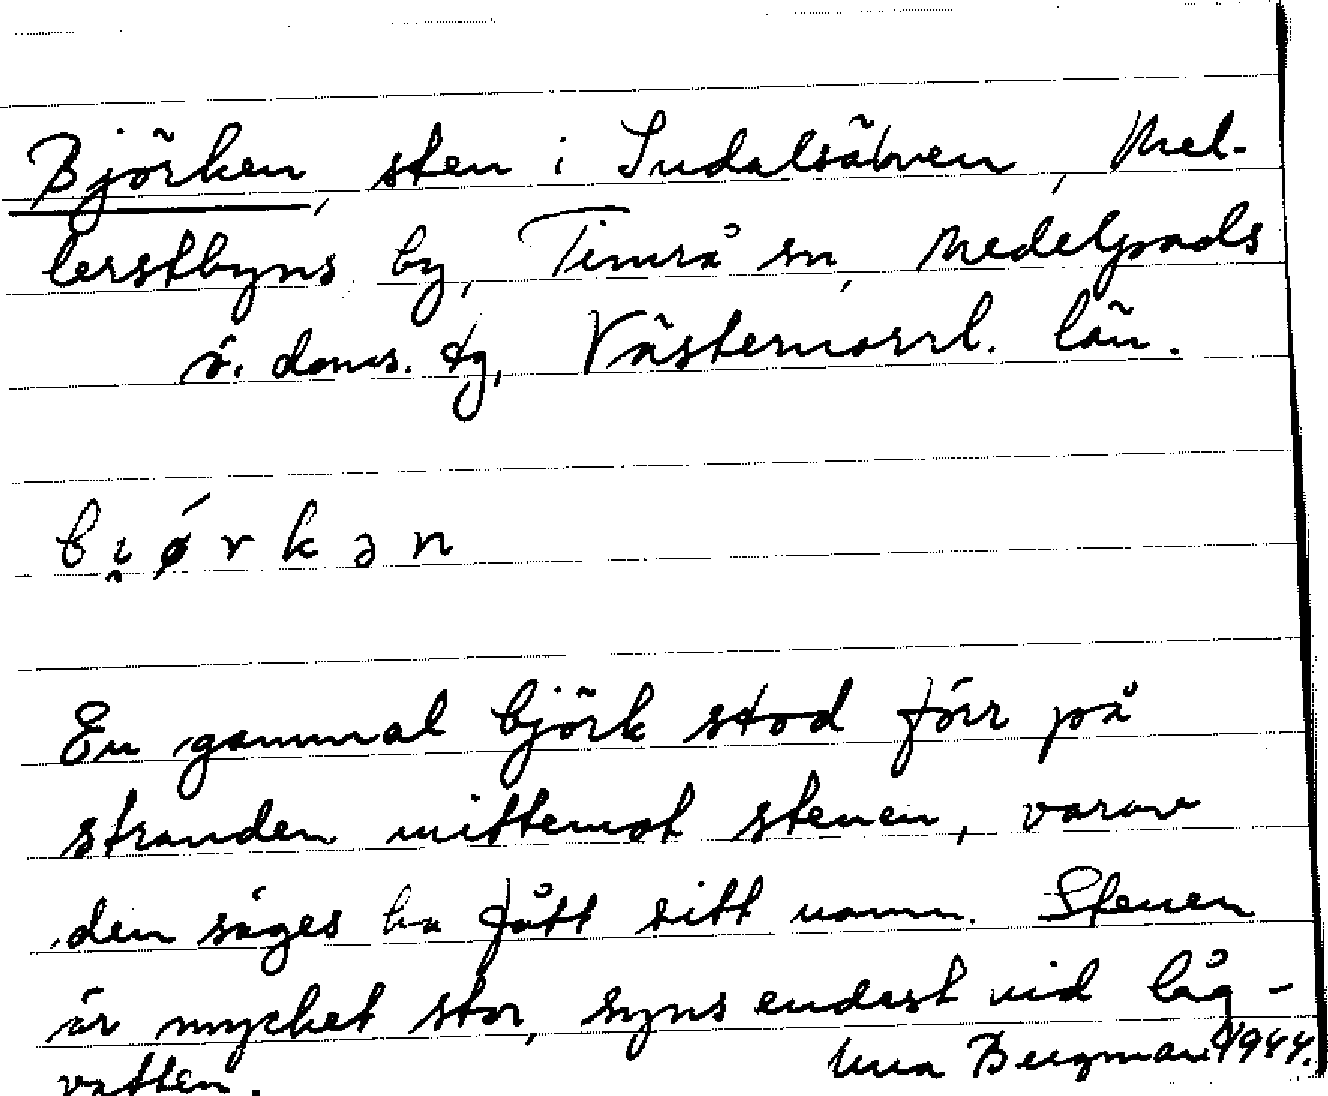 Björken, sten i Indalsälven, Mel-
lerstbyns by, Timrå sn, Medelpads
ö. doms. tg, Västernorrl. län.
bi̯ørkən
En gammal björk stod förr på
stranden mittemot stenen, varav
den säges ha fått sitt namn. Stenen
är mycket stor, syns endast vid låg-
vatten. Una Bergman 1944.